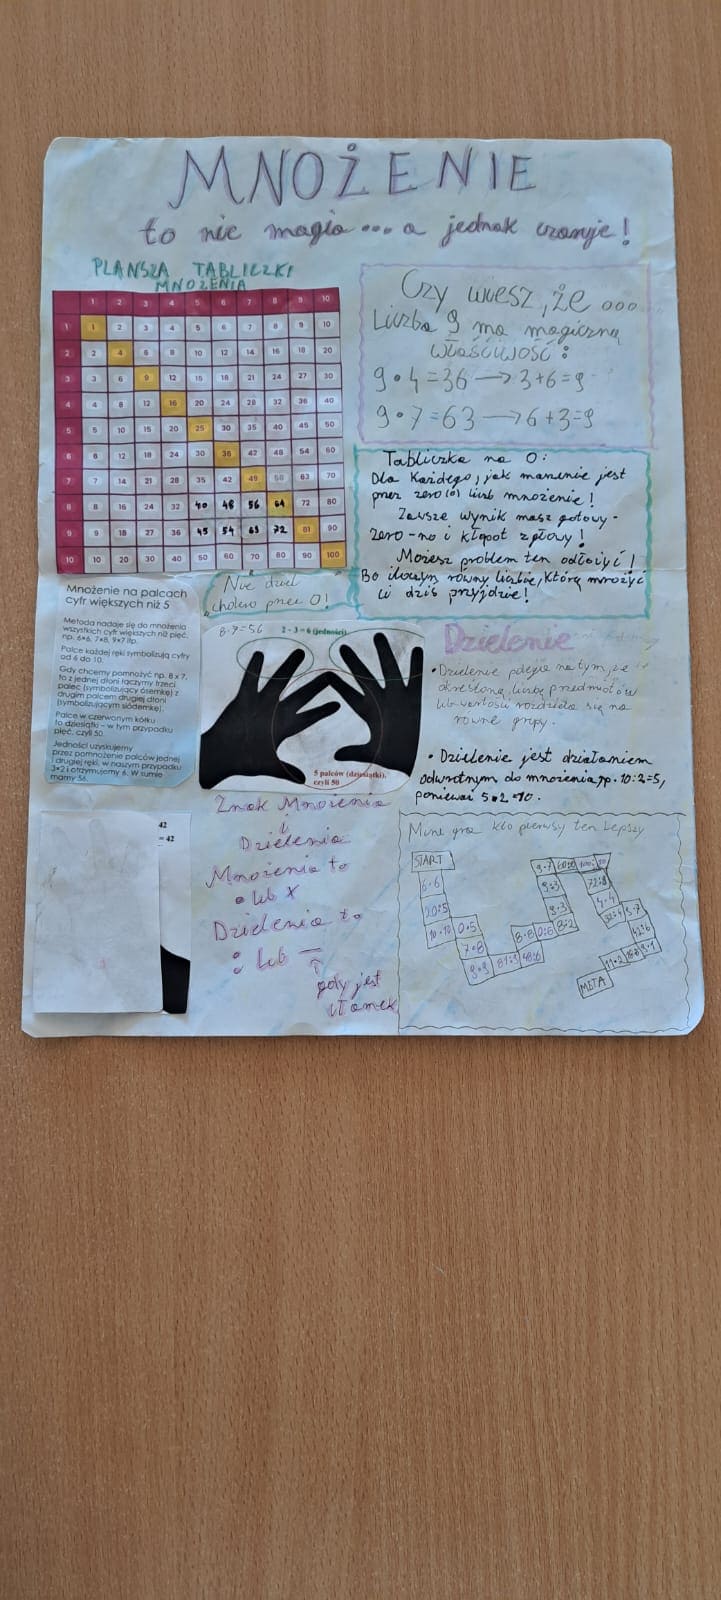 MNOŻENIE
to nie magia... a jednak czaruje!
PLANSZA TABLICZKI
MNOŻENIA
1 2 3 4 5 6 7 8 9 10
1 1 2 3 4 5 6 7 8 9 10
2 2 4 6 8 10 12 14 16 18 20
3 3 6 9 12 15 18 21 24 27 30
4 4 8 12 16 20 24 28 32 36 40
5 5 10 15 20 25 30 35 40 45 50
6 6 12 18 24 30 36 42 48 54 60
7 7 14 21 28 35 42 49 56 63 70
8 8 16 24 32 40 48 56 64 72 80
9 9 18 27 36 45 54 63 72 81 90
10 10 20 30 40 50 60 70 80 90 100
Czy wiesz, że...
Liczba 9 ma magiczną
właściwość:
9•4=36→3+6=9
9•7=63→6+3=9
Tabliczka na 0:
Dla każdego, jak marzenie jest
przez zero (0) liczb mnożenie!
Zawsze wynik masz gotowy-
zero-no i kłopot z głowy!
Możesz problem ten odłożyć!
Bo iloczyn równy liczbie, którą mnożyć
ci dziś przyjdzie!
Nie dziel
cholero przez 0!
Mnożenie na palcach
cyfr większych niż 5
Metoda nadaje się do mnożenia
wszystkich cyfr większych niż pięć,
np. 6×6, 7×8, 9×7 itp.
Palce każdej ręki symbolizują cyfry
od 6 do 10.
Gdy chcemy pomnożyć np. 8 x 7,
to z jednej dłoni łączymy trzeci
palec (symbolizujący ósemkę) z
drugim palcem drugiej dłoni
(symbolizującym siódemkę).
Palce w czerwonym kółku
to dziesiątki – w tym przypadku
pięć, czyli 50.
Jedności uzyskujemy
przez pomnożenie palców jednej
i drugiej ręki, w naszym przypadku
3×2 i otrzymujemy 6. W sumie
mamy 56.
8·7=56
2 · 3 = 6 (jedności)
5 palców (dziesiątki),
czyli 50
Dzielenie
• Dzielenie polega na tym, że
określoną liczbę przedmiotów
lub wartości rozdziela się na
równe grupy.
• Dzielenie jest działaniem
odwrotnym do mnożenia np. 10:2=5,
ponieważ 5•2=10.
42
= 42
Znak Mnożenia
i
Dzielenia
Mnożenia to
• lub x
Dzielenia to
: lub —
↑
gdy jest
ułamek
Mini gra kto pierwszy ten lepszy
START
6·6
20:5
10·10
0·5
7·8
9·9
81:9
48:6
8·8
0:6
8:2
9·3
META